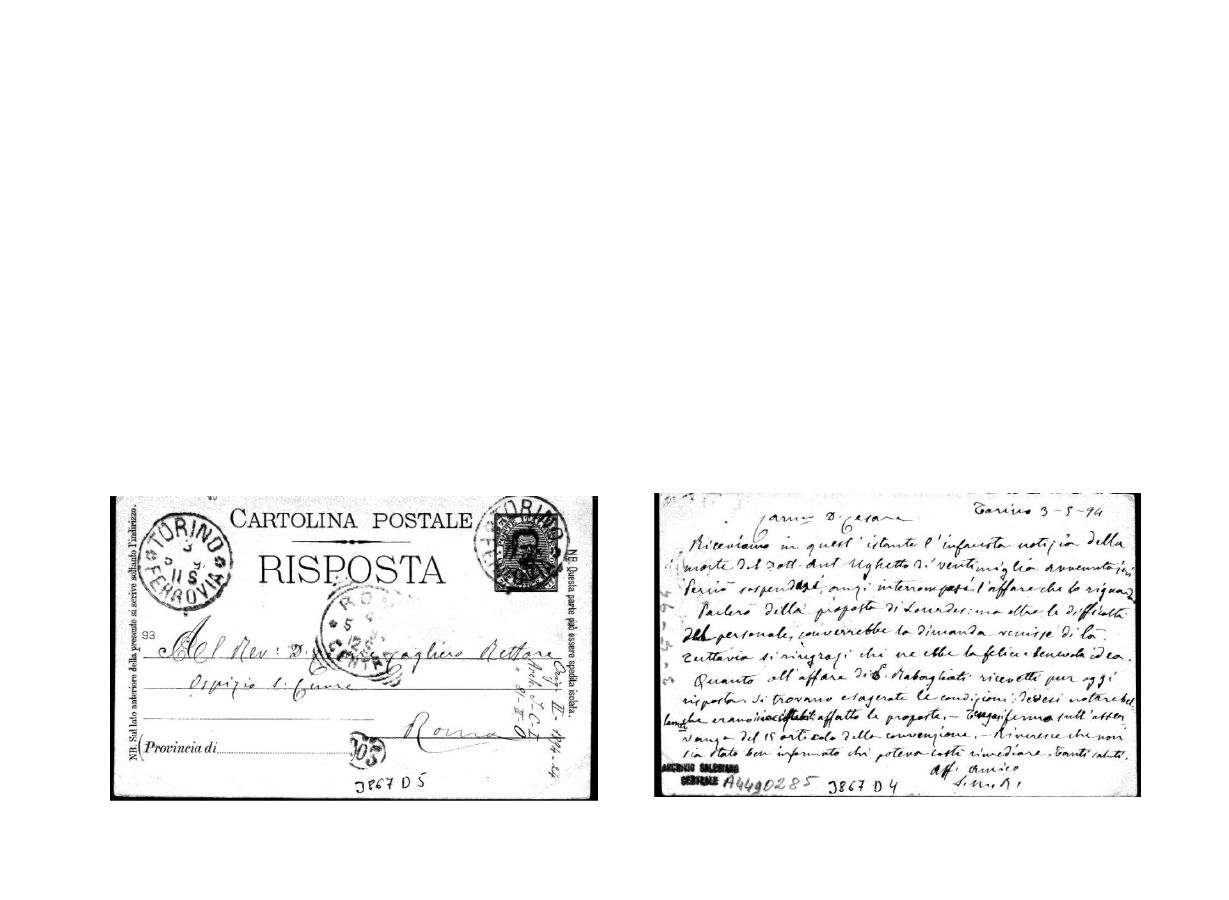 CARTOLINA POSTALE
RISPOSTA
TORINO
FERROVIA
3
5
11 S
TORINO
ROMA
5
CENTRO
NB. Sul lato anteriore della presente si scrive soltanto l'indirizzo.
NB. Questa parte può essere spedita isolata.
93
Al Rev: D. Cagliero Rettore
Ospizio S. Cuore
Roma
(Provincia di
J867 D 5
Torino 3-5-94
Carmo D. Cesare
Riceviamo in quest'istante l'infausta notizia della
morte del Dott. Ant Ughetto di Ventimiglia avvenuta ieri
Perciò sospendasi, anzi interrompasi l'affare che lo riguarda
Parlerò della proposta di Lourdes: ma oltre le difficoltà
del personale, converrebbe la dimanda venisse di là.
Tuttavia si ringrazi chi ne ebbe la felice e benevola idea.
Quanto all'affare di S. Rabagliati ricevetti pur oggi
risposta. Si trovano esagerate le condizioni: devesi notare bel-
lamente che erano affatto le proposte. – Tengasi fermo sull'osser
vanza del 15 articolo della convenzione. – Rincresce che non
sia stato ben informato chi poteva costì rimediare. Tanti saluti.
Aff. amico
ARCHIVIO SALESIANO
CENTRALE
A4490285
J867 D 4
3-5-94